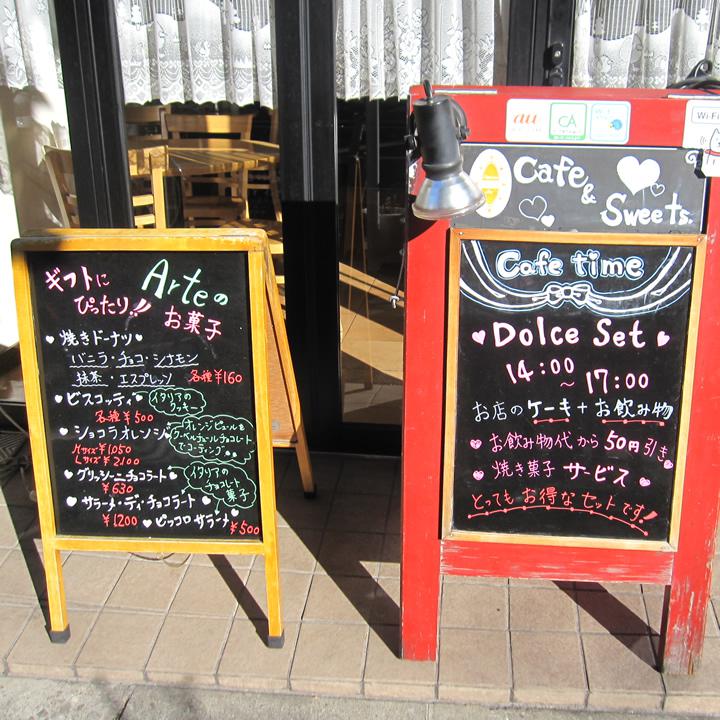 ギフトに
ぴったり!!
Arteの
お菓子
焼きドーナツ
バニラ・チョコ・シナモン
抹茶・エスプレッソ 各種¥160
ビスコッティ
イタリアの
クッキー
各種¥500
ショコラオレンジ
Mサイズ¥1,050
Lサイズ¥2,100
オレンジピールを
クーベルチュールチョコレート
でコーティング
グリッシーニチョコラート
¥630
イタリアの
チョコレート
菓子
サラーメ・ディ・チョコラート
¥1200
ピッコロサラーメ
¥500
au
CA
Wi-Fi
Cafe
&
Sweets.
Cafe time
Dolce Set
14:00
~
17:00
お店のケーキ+お飲み物
お飲み物代から50円引き
焼き菓子サービス
とってもお得なセットです!